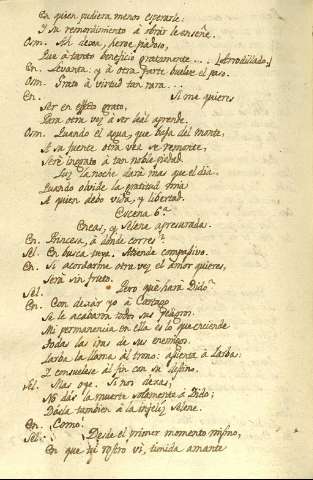 En quien pudiera menos esperarle:
Y su remordimiento à obrar le enseñe.
Osm. Ah! dexa, heroe piadoso,
Que à tanto beneficio gratamente.... [Arrodillado]
En. Levanta: y à otra parte buelve el paso.
Osm. Grato à virtud tan rara...
En. Si me quieres
Ser en effeto grato,
Para otra vez à ser leal aprende.
Osm. Quando el agua, que baja del monte,
A su fuente otra vez se remonte,
Seré ingrato à tan noble piedad.
Luz la noche dará mas que el dia
Quando olvide la gratitud mia
A quien debo vida, y libertad.
Escena 6ª
Eneas, y Selene apresurada.
En. Princesa, à donde corres?
Sel. En busca tuya. Atiende compasivo.
En. Si acordarme otra vez el amor quieres,
Será sin fruto.
Sel. Pero què hará Dido?
En. Con dexar yo à Cartago
Se le acabarán todos sus peligros.
Mi permanencia en ella es lo que enciende
Todas las iras de sus enemigos.
Iarba la llama al trono:
Y consuelese al fin con su destino.
Sel. Mas oye. Si nos dexas,
No dás la muerte solamente à Dido;
Dásla tambien à la infeliz Selene.
En. Como.
Sel. Desde el primer momento mismo,
En que tu rostro vi, timida amante